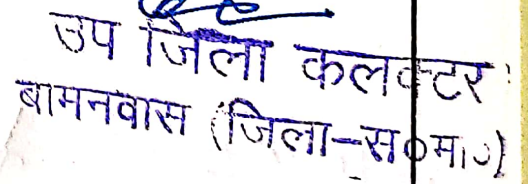 उप जिला कलक्टर
बामनवास (जिला-स०मा०)